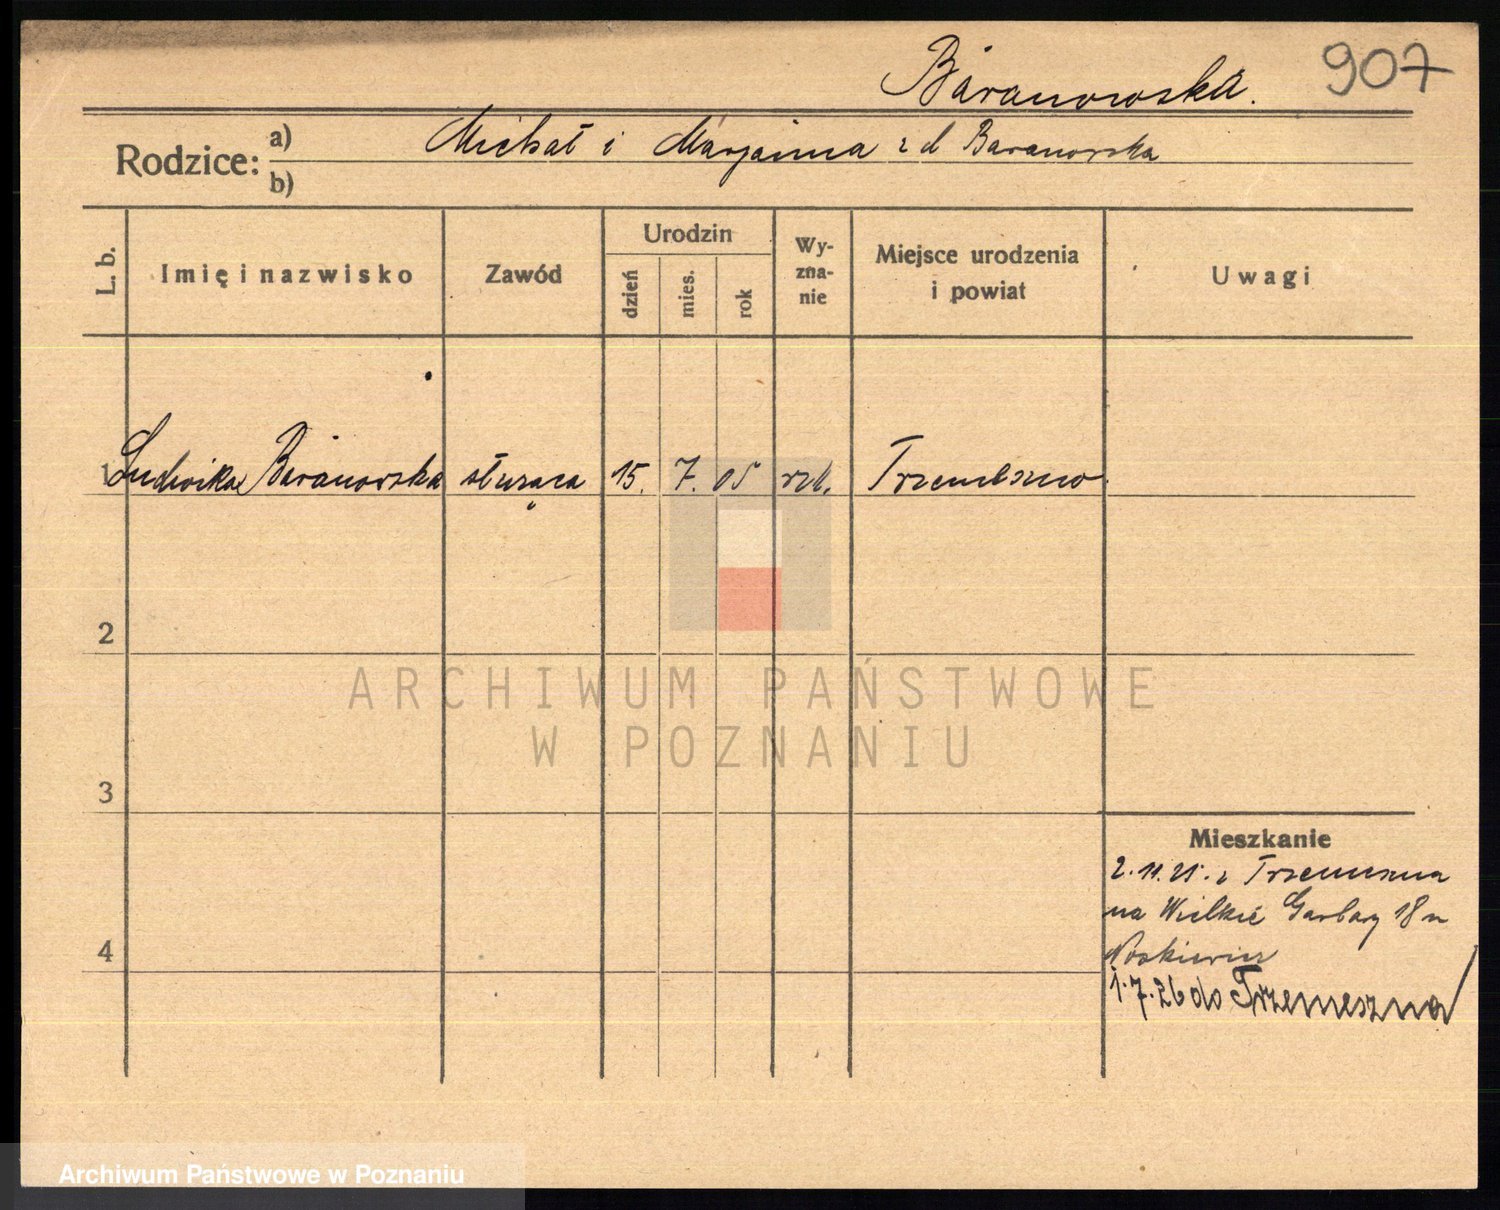 Baranowska. 907
Rodzice: a) Michał i Marjanna z d Baranowska
b)
L. b. Imię i nazwisko Zawód Urodzin dzień mies. rok Wyzna-nie Miejsce urodzenia i powiat Uwagi
1 Ludwika Baranowska służąca 15. 7. 05 rzk. Trzemeszno
2
ARCHIWUM PAŃSTWOWE
W POZNANIU
3
Mieszkanie
2.11.25. z Trzemeszna
na Wielkie Garbary 18 u
4
Noskiewicz
1.7.26 do Trzemeszna
Archiwum Państwowe w Poznaniu